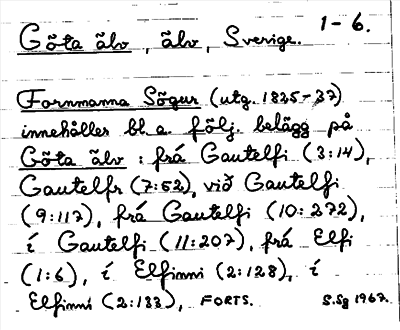 Göta älv, älv, Sverige. 1-6.
Fornmanna Sögur (utg. 1825-37)
innehåller bl.a. följ. belägg på
Göta älv : frá Gautelfi (3:14),
Gautelfr (7:52), við Gautelfi
(9:117), frá Gautelfi (10:272),
í Gautelfi (11:207), frá Elfi
(1:6), í Elfinni (2:128), í
Elfinni (2:133), FORTS. S.Sg 1967.